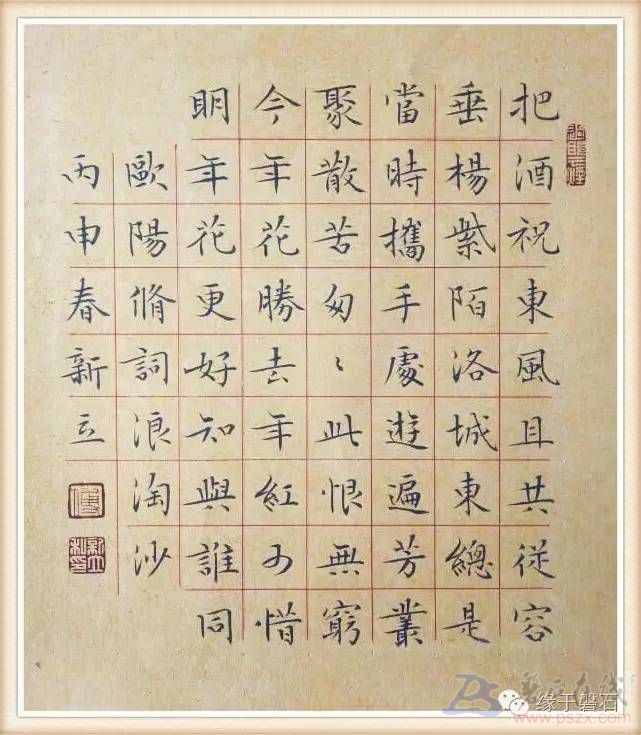 把酒祝東風且共從容
垂楊紫陌洛城東總是
當時攜手處遊遍芳叢
聚散苦匆〻此恨無窮
今年花勝去年紅可惜
明年花更好知與誰同
歐陽脩詞浪淘沙
丙申春新立
缘于磐石
www.pszx.com